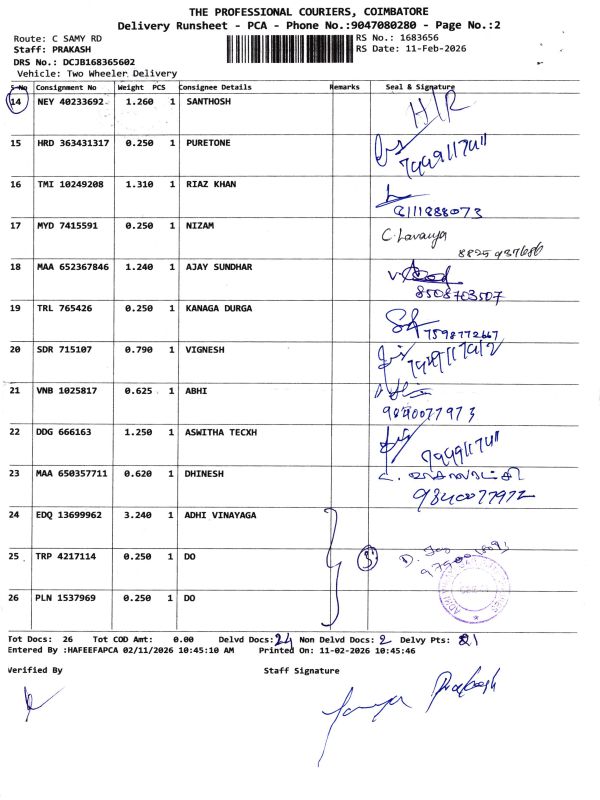 THE PROFESSIONAL COURIERS, COIMBATORE
Delivery Runsheet - PCA - Phone No.:9047080280 - Page No.:2
Route: C SAMY RD
RS No.: 1683656
Staff: PRAKASH
RS Date: 11-Feb-2026
DRS No.: DCJB168365602
Vehicle: Two Wheeler Delivery
S-No Consignment No Weight PCS Consignee Details Remarks Seal & Signature
14 NEY 40233692 1.260 1 SANTHOSH H/R
15 HRD 363431317 0.250 1 PURETONE
16 TMI 10249208 1.310 1 RIAZ KHAN
8111888073
17 MYD 7415591 0.250 1 NIZAM C. Lavanya
8825 937686
18 MAA 652367846 1.240 1 AJAY SUNDHAR
8508763507
19 TRL 765426 0.250 1 KANAGA DURGA
7598772667
20 SDR 715107 0.790 1 VIGNESH
21 VNB 1025817 0.625 1 ABHI
9040077973
22 DDG 666163 1.250 1 ASWITHA TECXH
23 MAA 650357711 0.620 1 DHINESH
9840077972
24 EDQ 13699962 3.240 1 ADHI VINAYAGA
25 TRP 4217114 0.250 1 DO 3
26 PLN 1537969 0.250 1 DO
Tot Docs: 26 Tot COD Amt: 0.00 Delvd Docs: 24 Non Delvd Docs: 2 Delvy Pts: 21
Entered By :HAFEEFAPCA 02/11/2026 10:45:10 AM Printed On: 11-02-2026 10:45:46
Verified By Staff Signature
Prakash